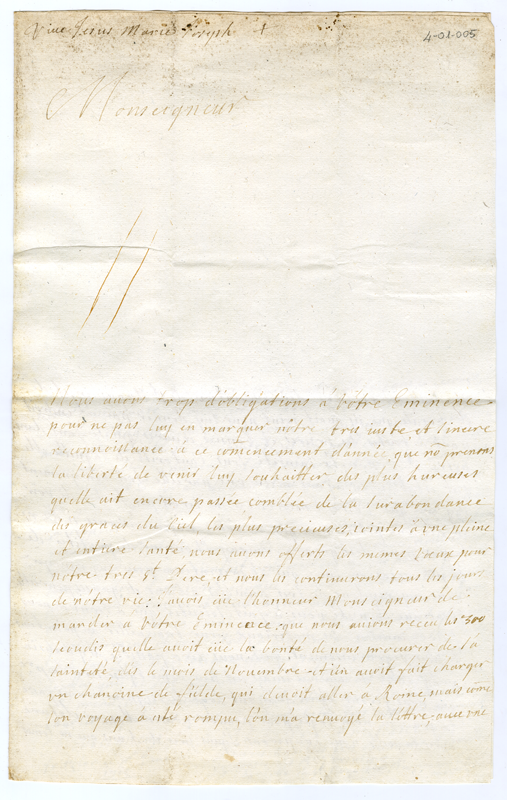 Vive Jesus Marie Joseph +
4-01-005
Monseigneur
Nous avons trop d'obligations à vôtre Eminence
pour ne pas luy en marquer nôtre tres juste et sincere
reconnoissance à ce comencement dannée, que nõ prenons
la liberté de venir luy souhaitter des plus hureuses
quelle ait encore passée comblée de la surabondance
des graces du Ciel, les plus precieuses, jointes à vne pleine
et entiere santé, nous avons offerts les memes voeux pour
nôtre tres St. Pere, et nous les continurons tous les jours
de nôtre vie. j'avois eüe l'honneur Monseigneur de
mander à vôtre Eminence, que nous avions receu les 300
scoudis quelle avoit eüe la bonté de nous procurer de sa
sainteté, dés le mois de Novembre et j'en avoit fait charger
vn chanoine de fulde, qui devoit aller à Rome, mais cõme
son voyage à eté rompu, l'on m'a renvoyé la lettre, avec vne